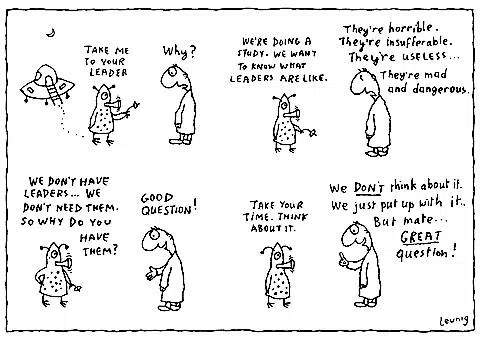 TAKE ME
TO YOUR
LEADER
Why?
WE'RE DOING A
STUDY. WE WANT
TO KNOW WHAT
LEADERS ARE LIKE.
They're horrible.
They're insufferable.
They're useless...
They're mad
and dangerous.
WE DON'T HAVE
LEADERS... WE
DON'T NEED THEM.
SO WHY DO YOU
HAVE
THEM?
GOOD
QUESTION!
TAKE YOUR
TIME. THINK
ABOUT IT.
We DON'T think about it.
We just put up with it..
But mate...
GREAT
question!
Leunig